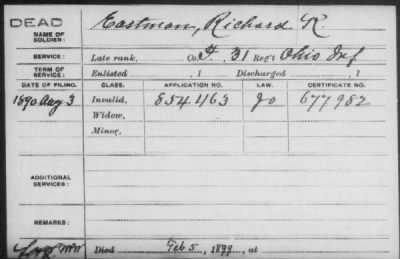 DEAD
NAME OF SOLDIER: Eastman, Richard R.
SERVICE: Late rank, Co. F. 31 Reg't Ohio Inf
TERM OF SERVICE: Enlisted , 1 Discharged , 1
DATE OF FILING. CLASS. APPLICATION NO. LAW. CERTIFICATE NO.
1890 Aug 3 Invalid, 854.463 Jo 677982
Widow,
Minor,
ADDITIONAL SERVICES:
REMARKS:
Died Feb 5, 1899, at